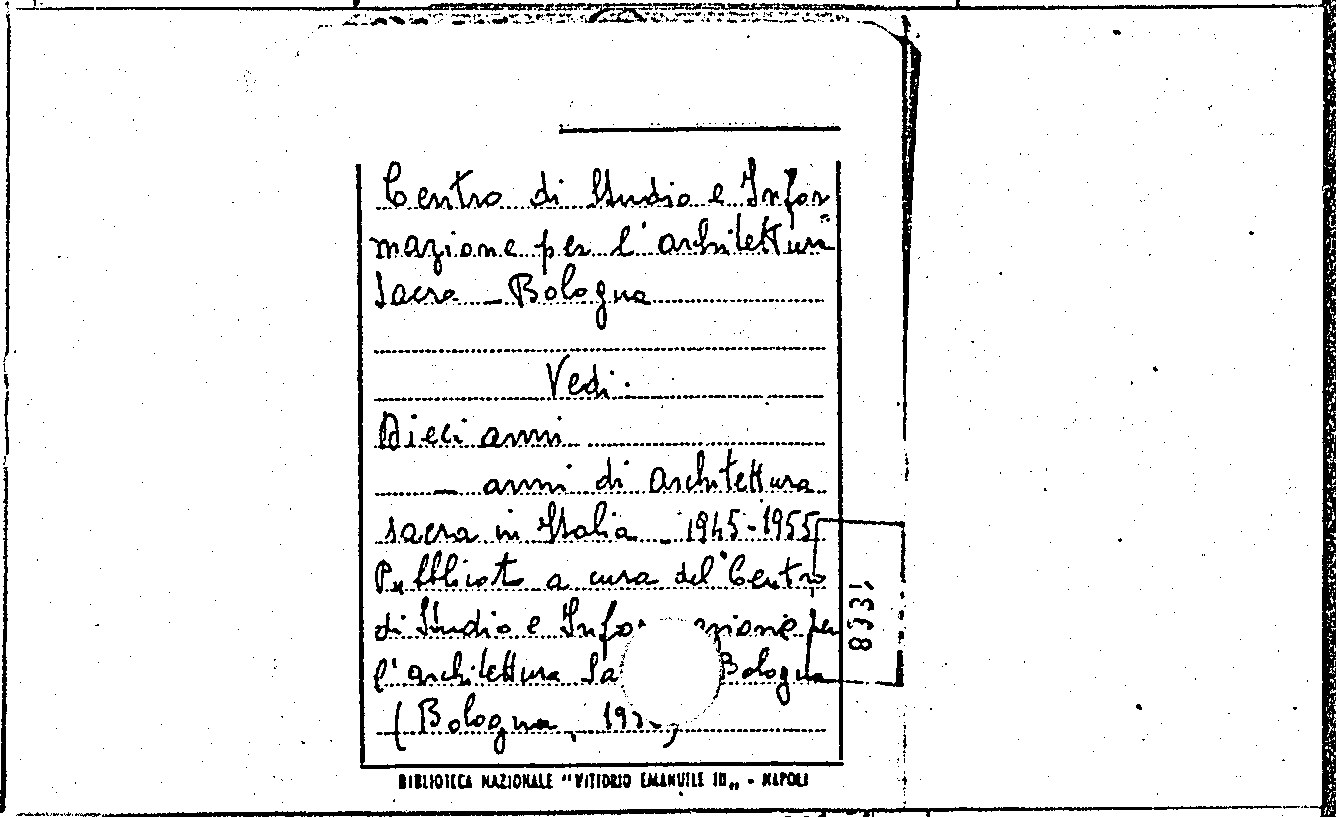 Centro di Studio e Infor
mazione per l'architettura
Sacra - Bologna
Vedi:
Dieci anni
- anni di architettura
sacra in Italia - 1945-1955
Pubblicato a cura del Centro
di Studio e Infor zione per
l'architettura Sa Bologna
(Bologna, 195
8331
BIBLIOTECA NAZIONALE "VITTORIO EMANUELE III„ - NAPOLI